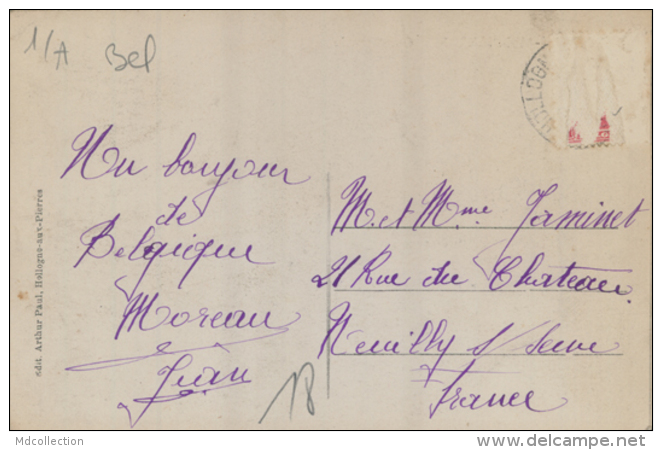 1/A Bel
HOLLOGN
Un bonjour
de
Belgique
Moreau
Jean
18
M. et Mme Jaminet
21 Rue du Chateau
Neuilly s/ Seine
France
Edit. Arthur Paul, Hollogne-aux-Pierres
Mdcollection
www.delcampe.net